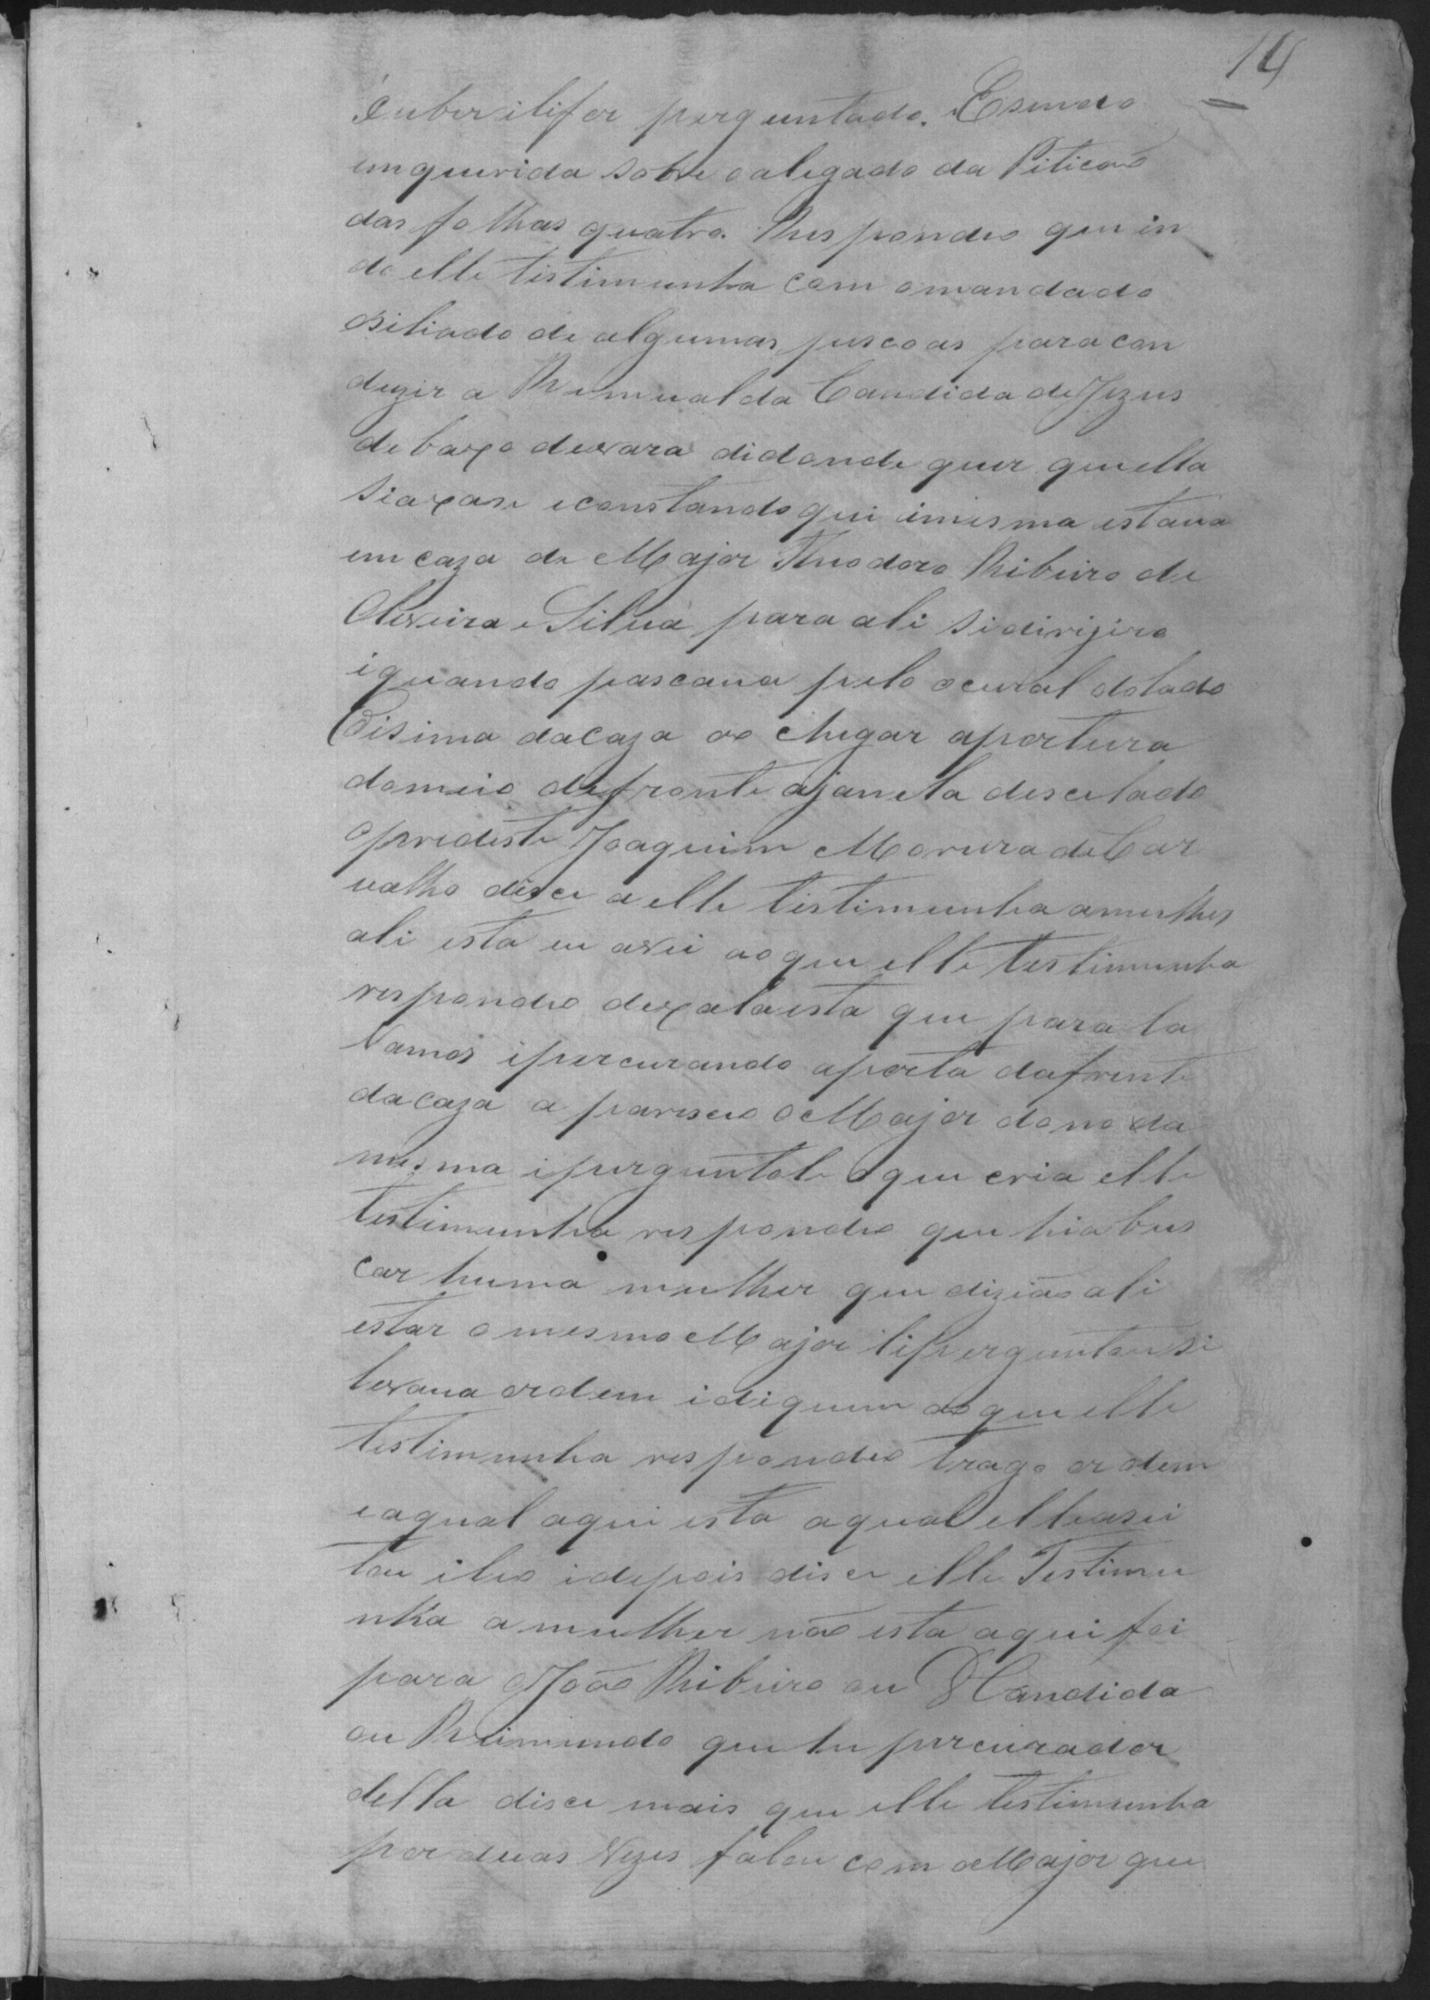 14
Cuber ilifor perguntado. E sendo
enquerida sobre o alegado da Piticaõ
das folhas quatro. Respondeo que in
do elle testimunha com o mandado
osiliado de algumas puscoas para con
duzir a Rumualda Candida de Jezus
debaxo devara didonde quer que ella
siaxase econstando qui imesma estava
em caza do Major Theodoro Ribeiro de
Oliveira e Silva para ali sidirijiro
iquando pascava pelo ocural dolado
Cisima dacaza ao chegar aportura
domeio defronte ajanela descelado
opredeste Joaquim Morura de Car
valho disce a elle testimunha amulher
ali esta eu avii ao que elle testimunha
respondeo dexalaesta que para la
vamos ipurcurando aporta dafrente
dacaza a pariseo o Major dono da
mesma ipurguntole o que cria elle
testimunha respondeo que hia bus
car huma mulher que diziaõ ali
estar o mesmo Major liperguntou si
levava ordem idiquem ao que elle
testimunha respondeo trago ordem
eaqual aqui esta aqual elleasei
tou ileo idepois disce elle Testimu
nha amulher naõ esta aqui foi
para o Joaõ Ribeiro ou D Candida
ou Raimundo que he purcurador
della disce mais que elle testimunha
por duas vezes falou com o Major que